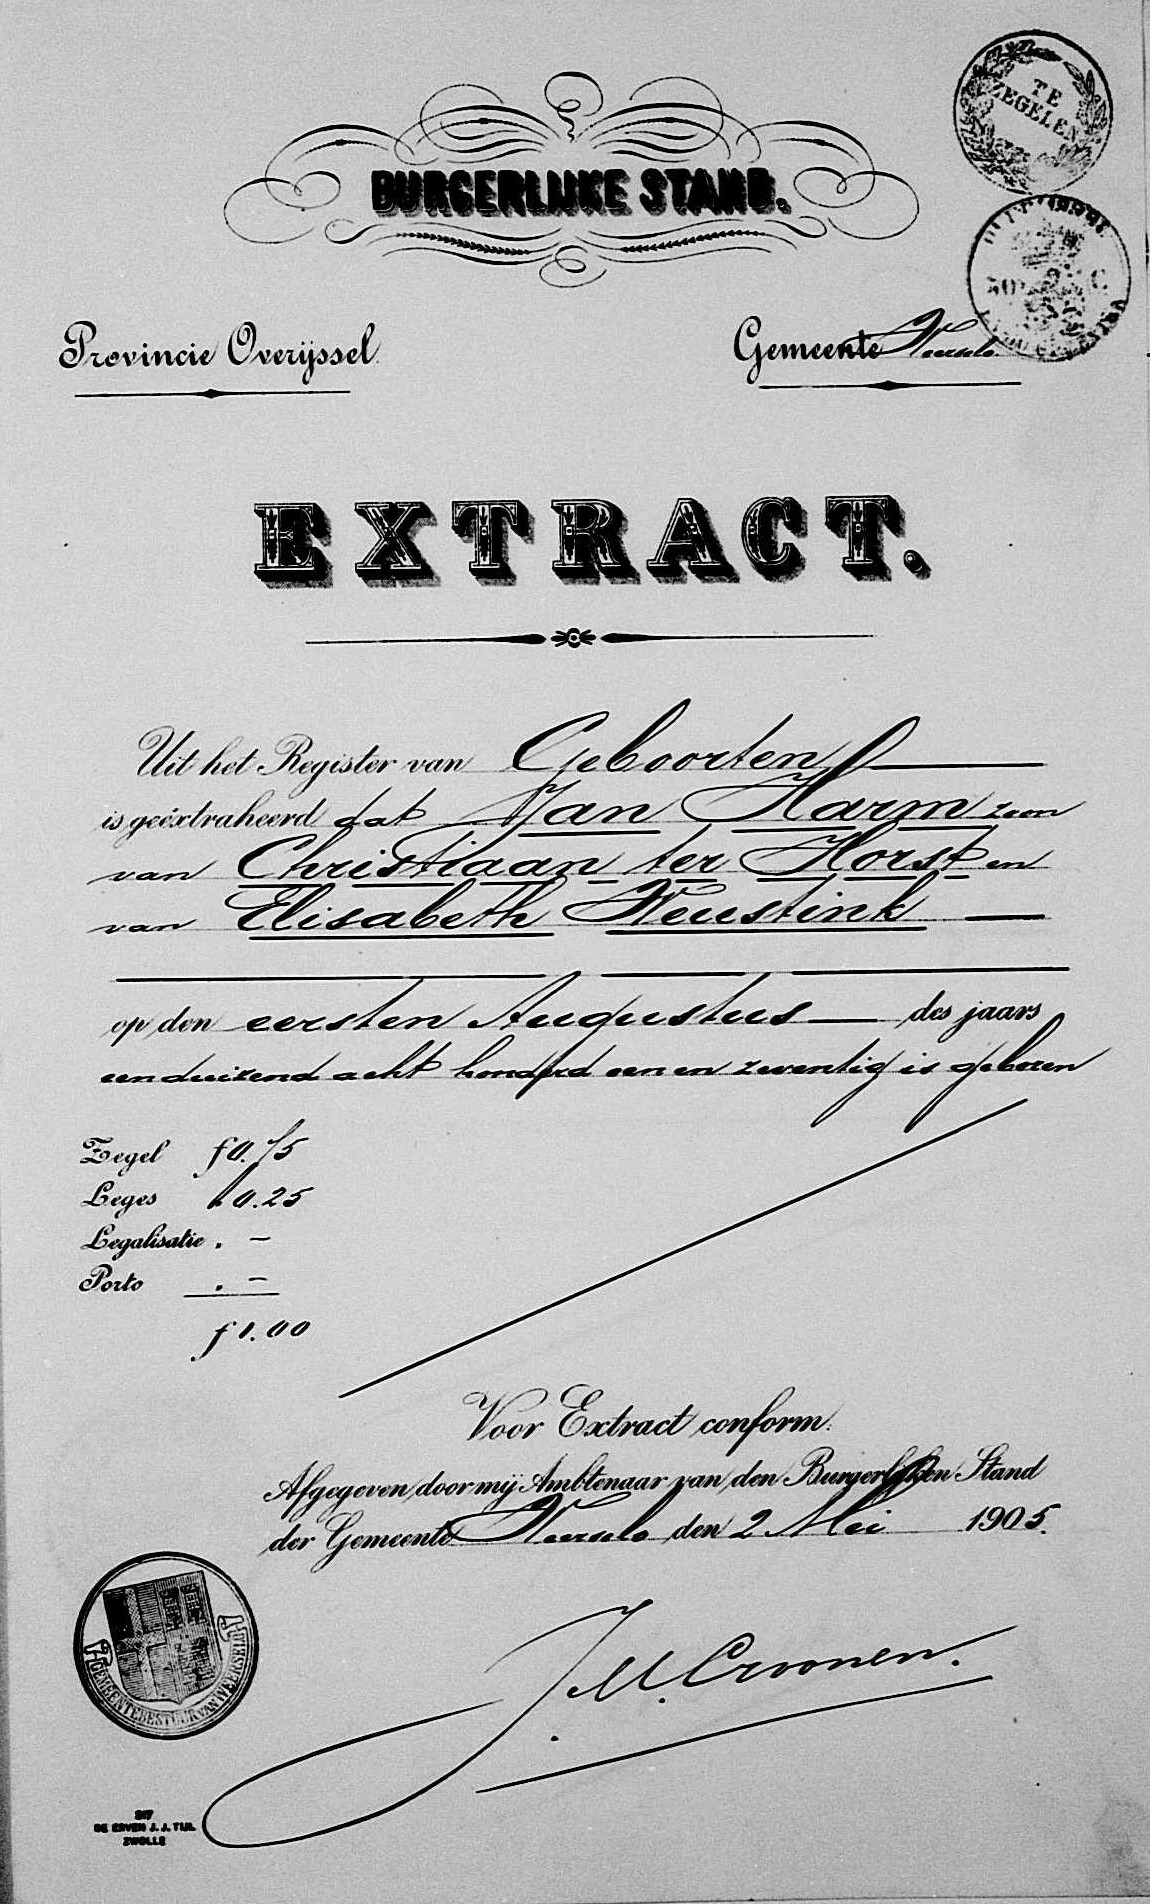 TE
ZEGELEN
BURGERLIJKE STAND.
Provincie Overijssel. Gemeente Weerselo
EXTRACT.
Uit het Register van Geboorten
is geëxtraheerd dat Jan Harm zoon
van Christiaan ter Horst en
van Elisabeth Neustink
op den eersten Augustus des jaars
eenduizend acht honderd een en zeventig is geboren
Zegel f 0.75
Leges " 0.25
Legalisatie . -
Porto . -
f 1.00
Voor Extract conform.
Afgegeven door mij Ambtenaar van den Burgerlijken Stand
der Gemeente Weerselo den 2 Mei 1905.
GEMEENTEBESTUUR VAN WEERSELO
J. M. Croonen.
DE ERVEN J. J. TIJL
ZWOLLE